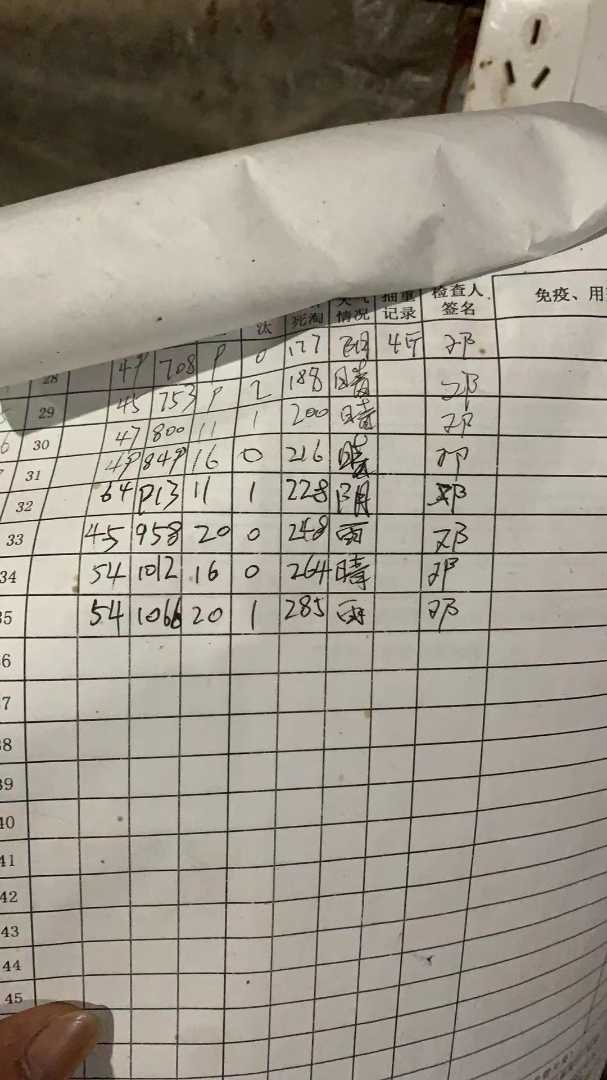 汰 死淘 情况 抽重记录 检查人签名 免疫、用
28 49 708 9 0 177 阴 4斤 邓
29 45 753 9 2 188 晴 邓
30 47 800 11 1 200 晴 邓
31 49 849 16 0 216 晴 邓
32 64 913 11 1 228 阴 邓
33 45 958 20 0 248 雨 邓
34 54 1012 16 0 264 晴 邓
35 54 1066 20 1 285 雨 邓
36
37
38
39
40
41
42
43
44
45